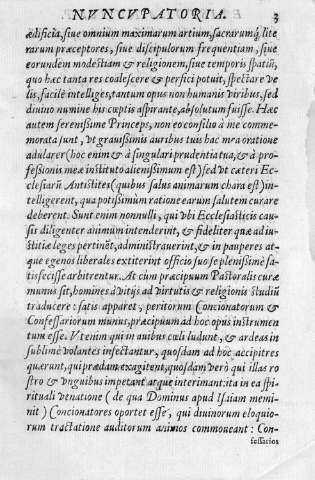 NVNCVPATORIA. 3
ædificia, siue omnium maximarum artium, sacrarumq́; lite
rarum præceptores, siue discipulorum frequentiam, siue
eorundem modestiam & religionem, siue temporis spatiū,
quo hæc tanta res coalescere & perfici potuit, spectare ve
lis, facilè intelliges, tantum opus non humanis viribus, sed
diuino numine his cœptis aspirante, absolutum fuisse. Hæc
autem serenissime Princeps, non eo consilio à me comme-
morata sunt, vt grauissimis auribus tuis hac mea oratione
adularer (hoc enim & à singulari prudentia tua, & à pro-
fessionis meæ instituto alienissimum est) sed vt cæteri Ec-
clesiarū Antistites (quibus salus animarum chara est) in-
telligerent, qua potissimùm ratione earum salutem curare
deberent. Sunt enim nonnulli, qui vbi Ecclesiasticis cau-
sis diligenter animum intenderint, & fideliter quæ ad iu-
stitiæ leges pertinēt, administrauerint, & in pauperes at-
que egenos liberales extiterint officio suo se plenissimè sa-
tisfecisse arbitrentur. At cùm præcipuum Pastoralis curæ
munus sit, homines à vitijs ad virtutis & religionis studiū
traducere: satis apparet, peritorum Concionatorum &
Confessariorum munus, præcipuum ad hoc opus instrumen
tum esse. Vt enim qui in auibus cœli ludunt, & ardeas in
sublime volantes insectantur, quosdam ad hoc accipitres
quærunt, qui prædam exagitent, quosdam verò qui illas ro
stro & vnguibus impetant atque interimant: ita in ea spi-
rituali venatione (de qua Dominus apud Isaiam memi-
nit) Concionatores oportet esse, qui diuinorum eloquio-
rum tractatione auditorum animos commoueant: Con-
fessarios